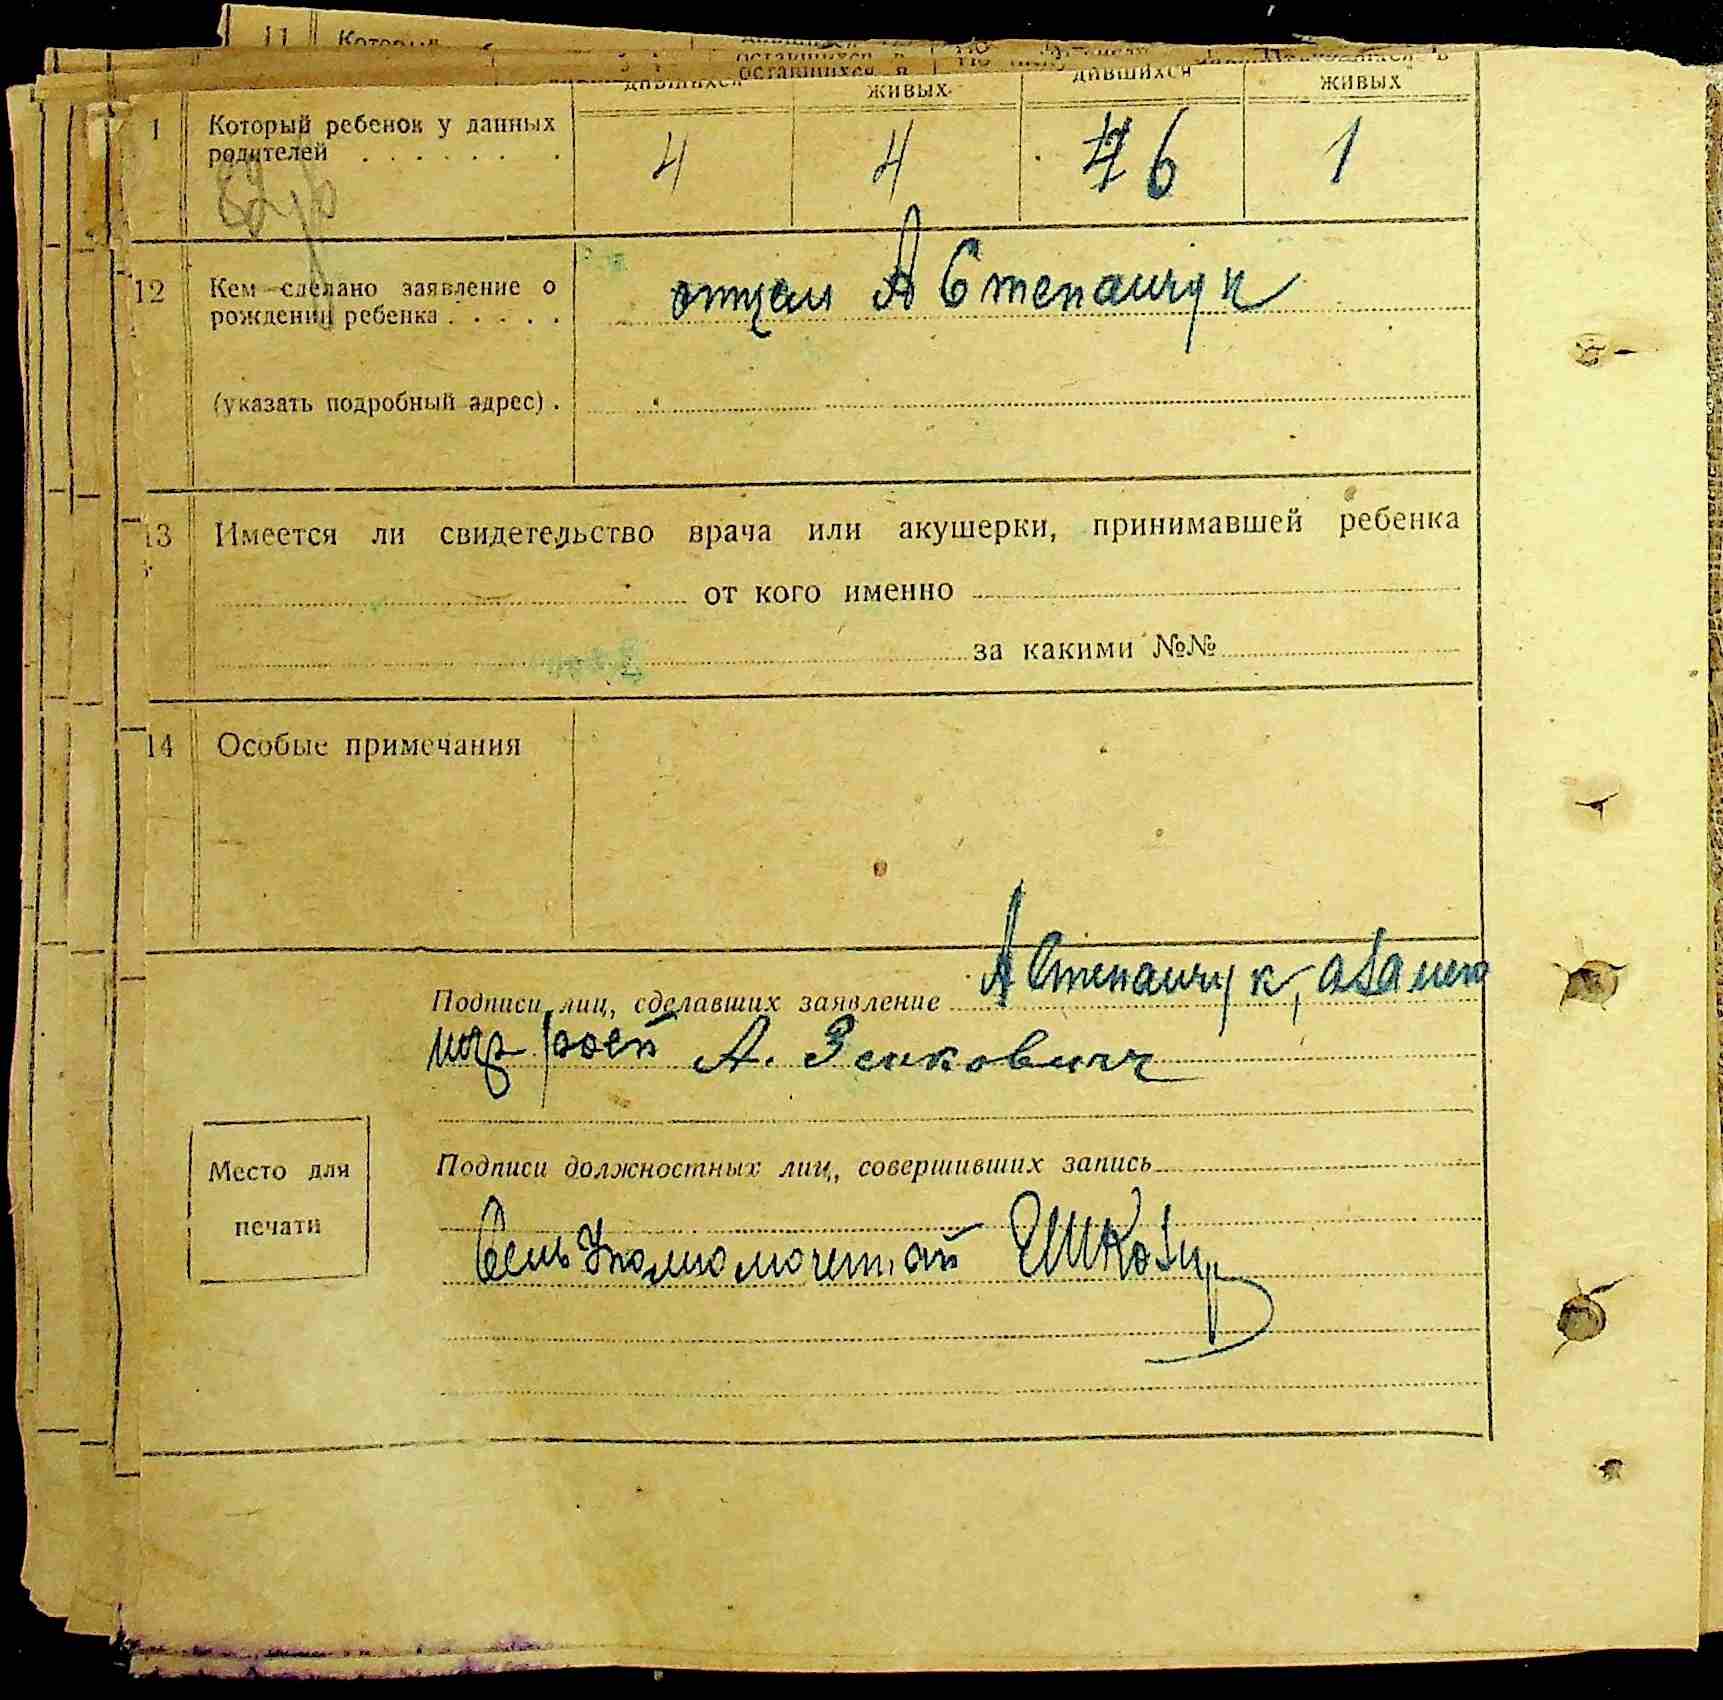 11 Который
дившихся оставшихся в живых дившихся живых
1 Который ребенок у данных
родителей . . . . . . . 4 4 6 1
12 Кем сделано заявление о
рождении ребенка . . . . . отцем А Степанчук
(указать подробный адрес) .
13 Имеется ли свидетельство врача или акушерки, принимавшей ребенка
от кого именно
за какими №№
14 Особые примечания
Подписи лиц, сделавших заявление А Степанчук,
А. Зенкович
Место для
печати
Подписи должностных лиц, совершивших запись
Сель Уполномоченный